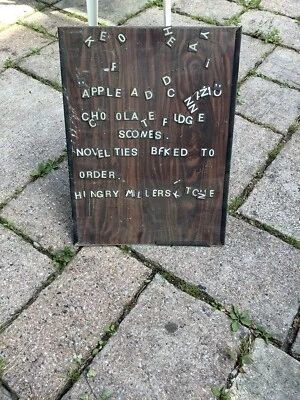 K E O H E A K
F I
APPLE A D D C NNAZIC
CHOOLATE FUDGE
SCONES.
NOVELTIES BFKED TO
ORDER.
HINGRY MILLERS K TOWE